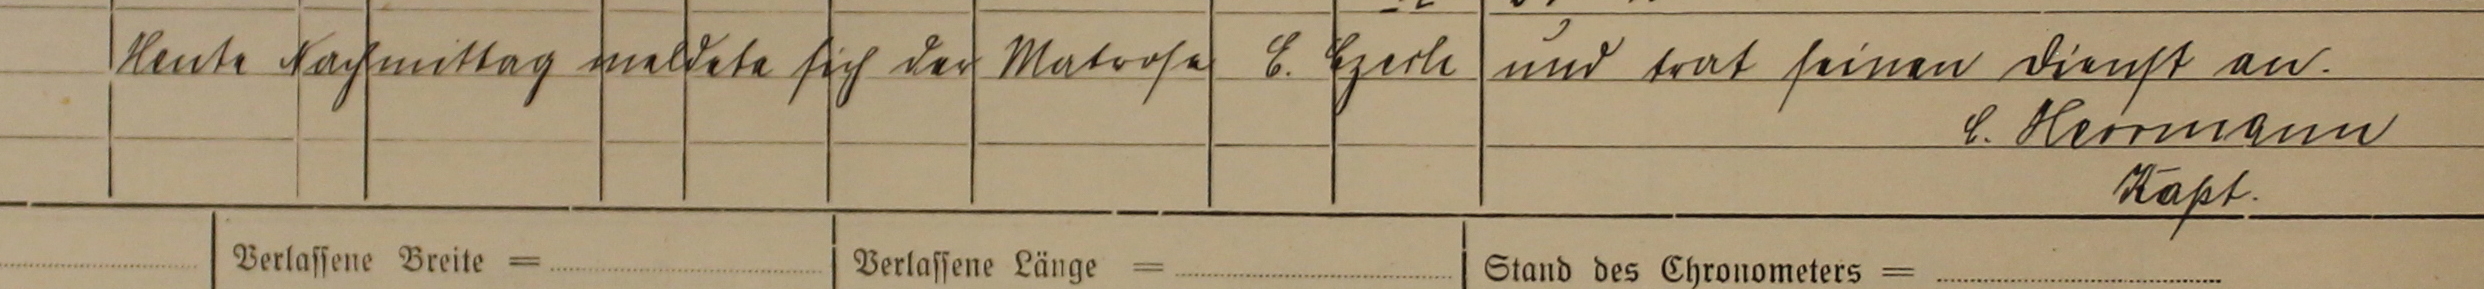 Heute Nachmittag meldete sich der Matrose E. Ezerle und trat seinen Dienst an.
C. Herrmann
Kapt.
Verlassene Breite = Verlassene Länge = Stand des Chronometers =